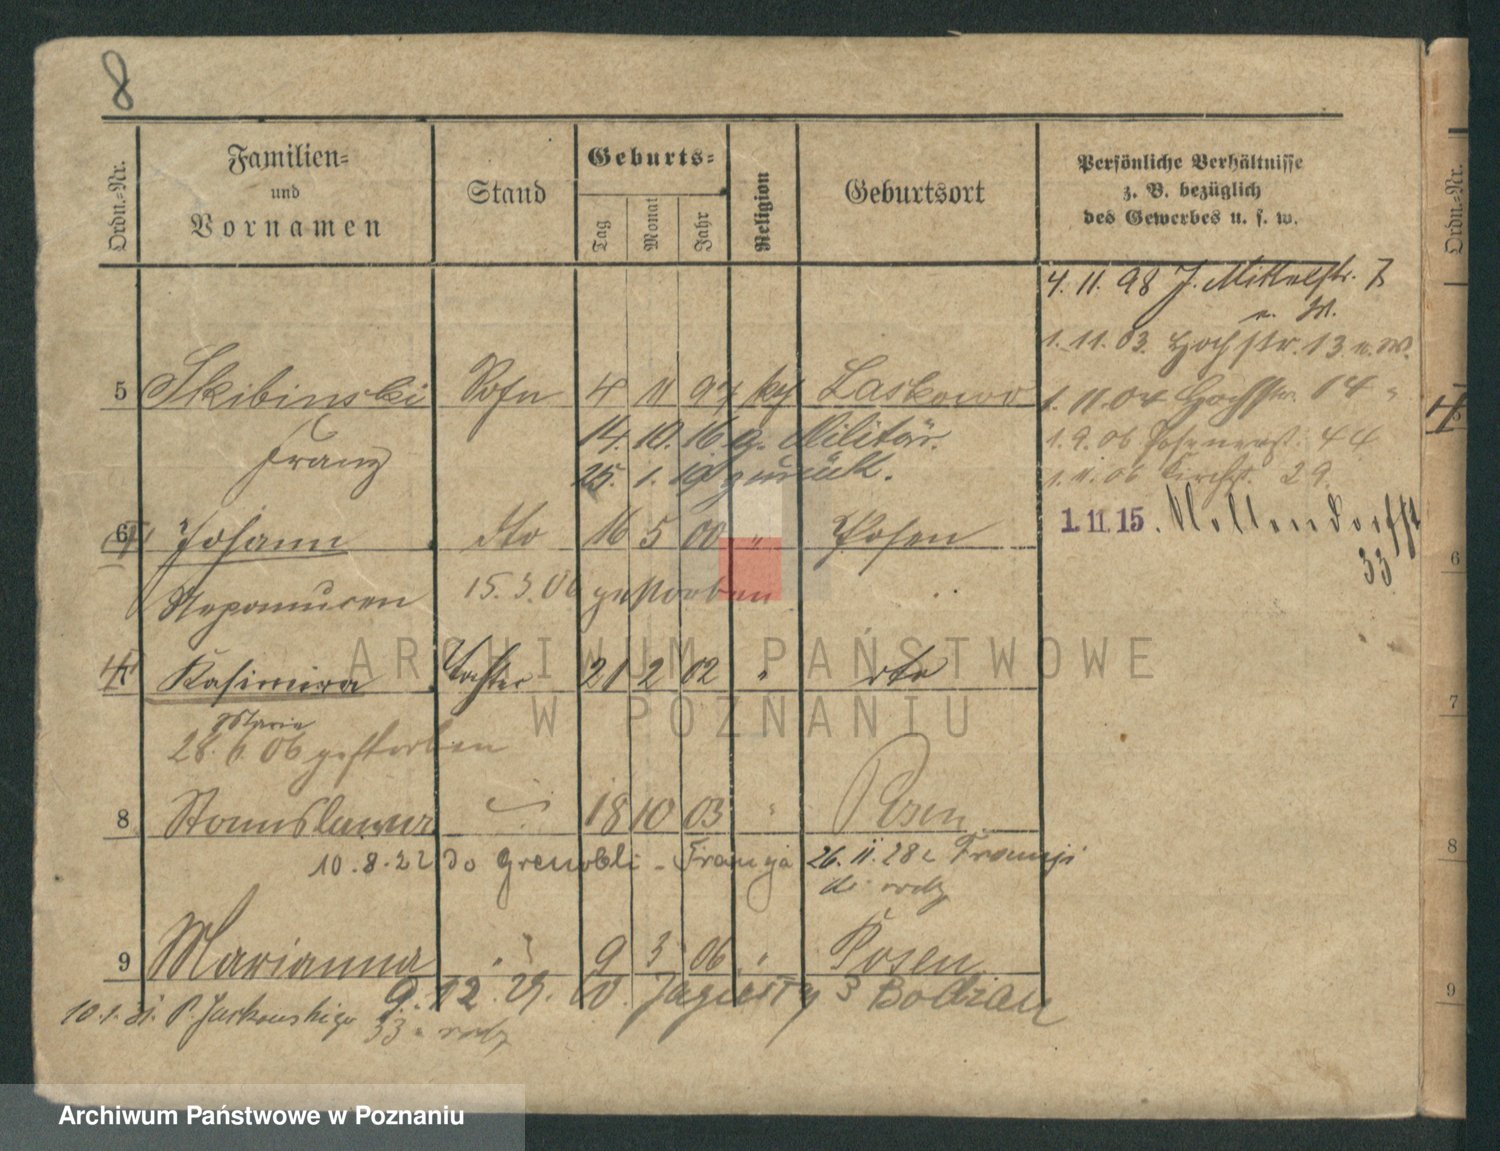 8
Ordn.-Nr.
Familien-
und
Vornamen
Stand
Geburts-
Tag
Monat
Jahr
Religion
Geburtsort
Persönliche Verhältnisse
z. B. bezüglich
des Gewerbes u. s. w.
Ordn.-Nr.
4. 11. 98 J. Mittelstr. 7
1. 11. 03. Hochstr. 13 n. W.
5 Skibinski Sohn 4 11 97 kath Laskowo
1. 11. 04 Hochstr. 14 "
Franz
14. 10. 16 g. Militär.
25. 1. 19 zurück.
1. 9. 06 Posenerst. 44
1. 11. 06 Kirchst. 29.
6 Johann dto 16 5 00 " Posen
1. 11. 15. Hollendorffst
33
Nepomucen 15. 3. 06 gestorben
Kasimira Tochter 21 2 02 " dto
Maria
28. 6. 06 gestorben
8 Stanislawa 18 10 03 " Posen
10. 8. 22 do Grenobli - Francja 26. 11. 28 z Francji
do rodz
9 Marianna " 9 3 06 " Posen
9. 12. 29. W. Jagiełły 3 Bodzian
10. 1. 31. P. Jackowskiego
33 rodz
6
7
8
9
ARCHIWUM PAŃSTWOWE
W POZNANIU
Archiwum Państwowe w Poznaniu